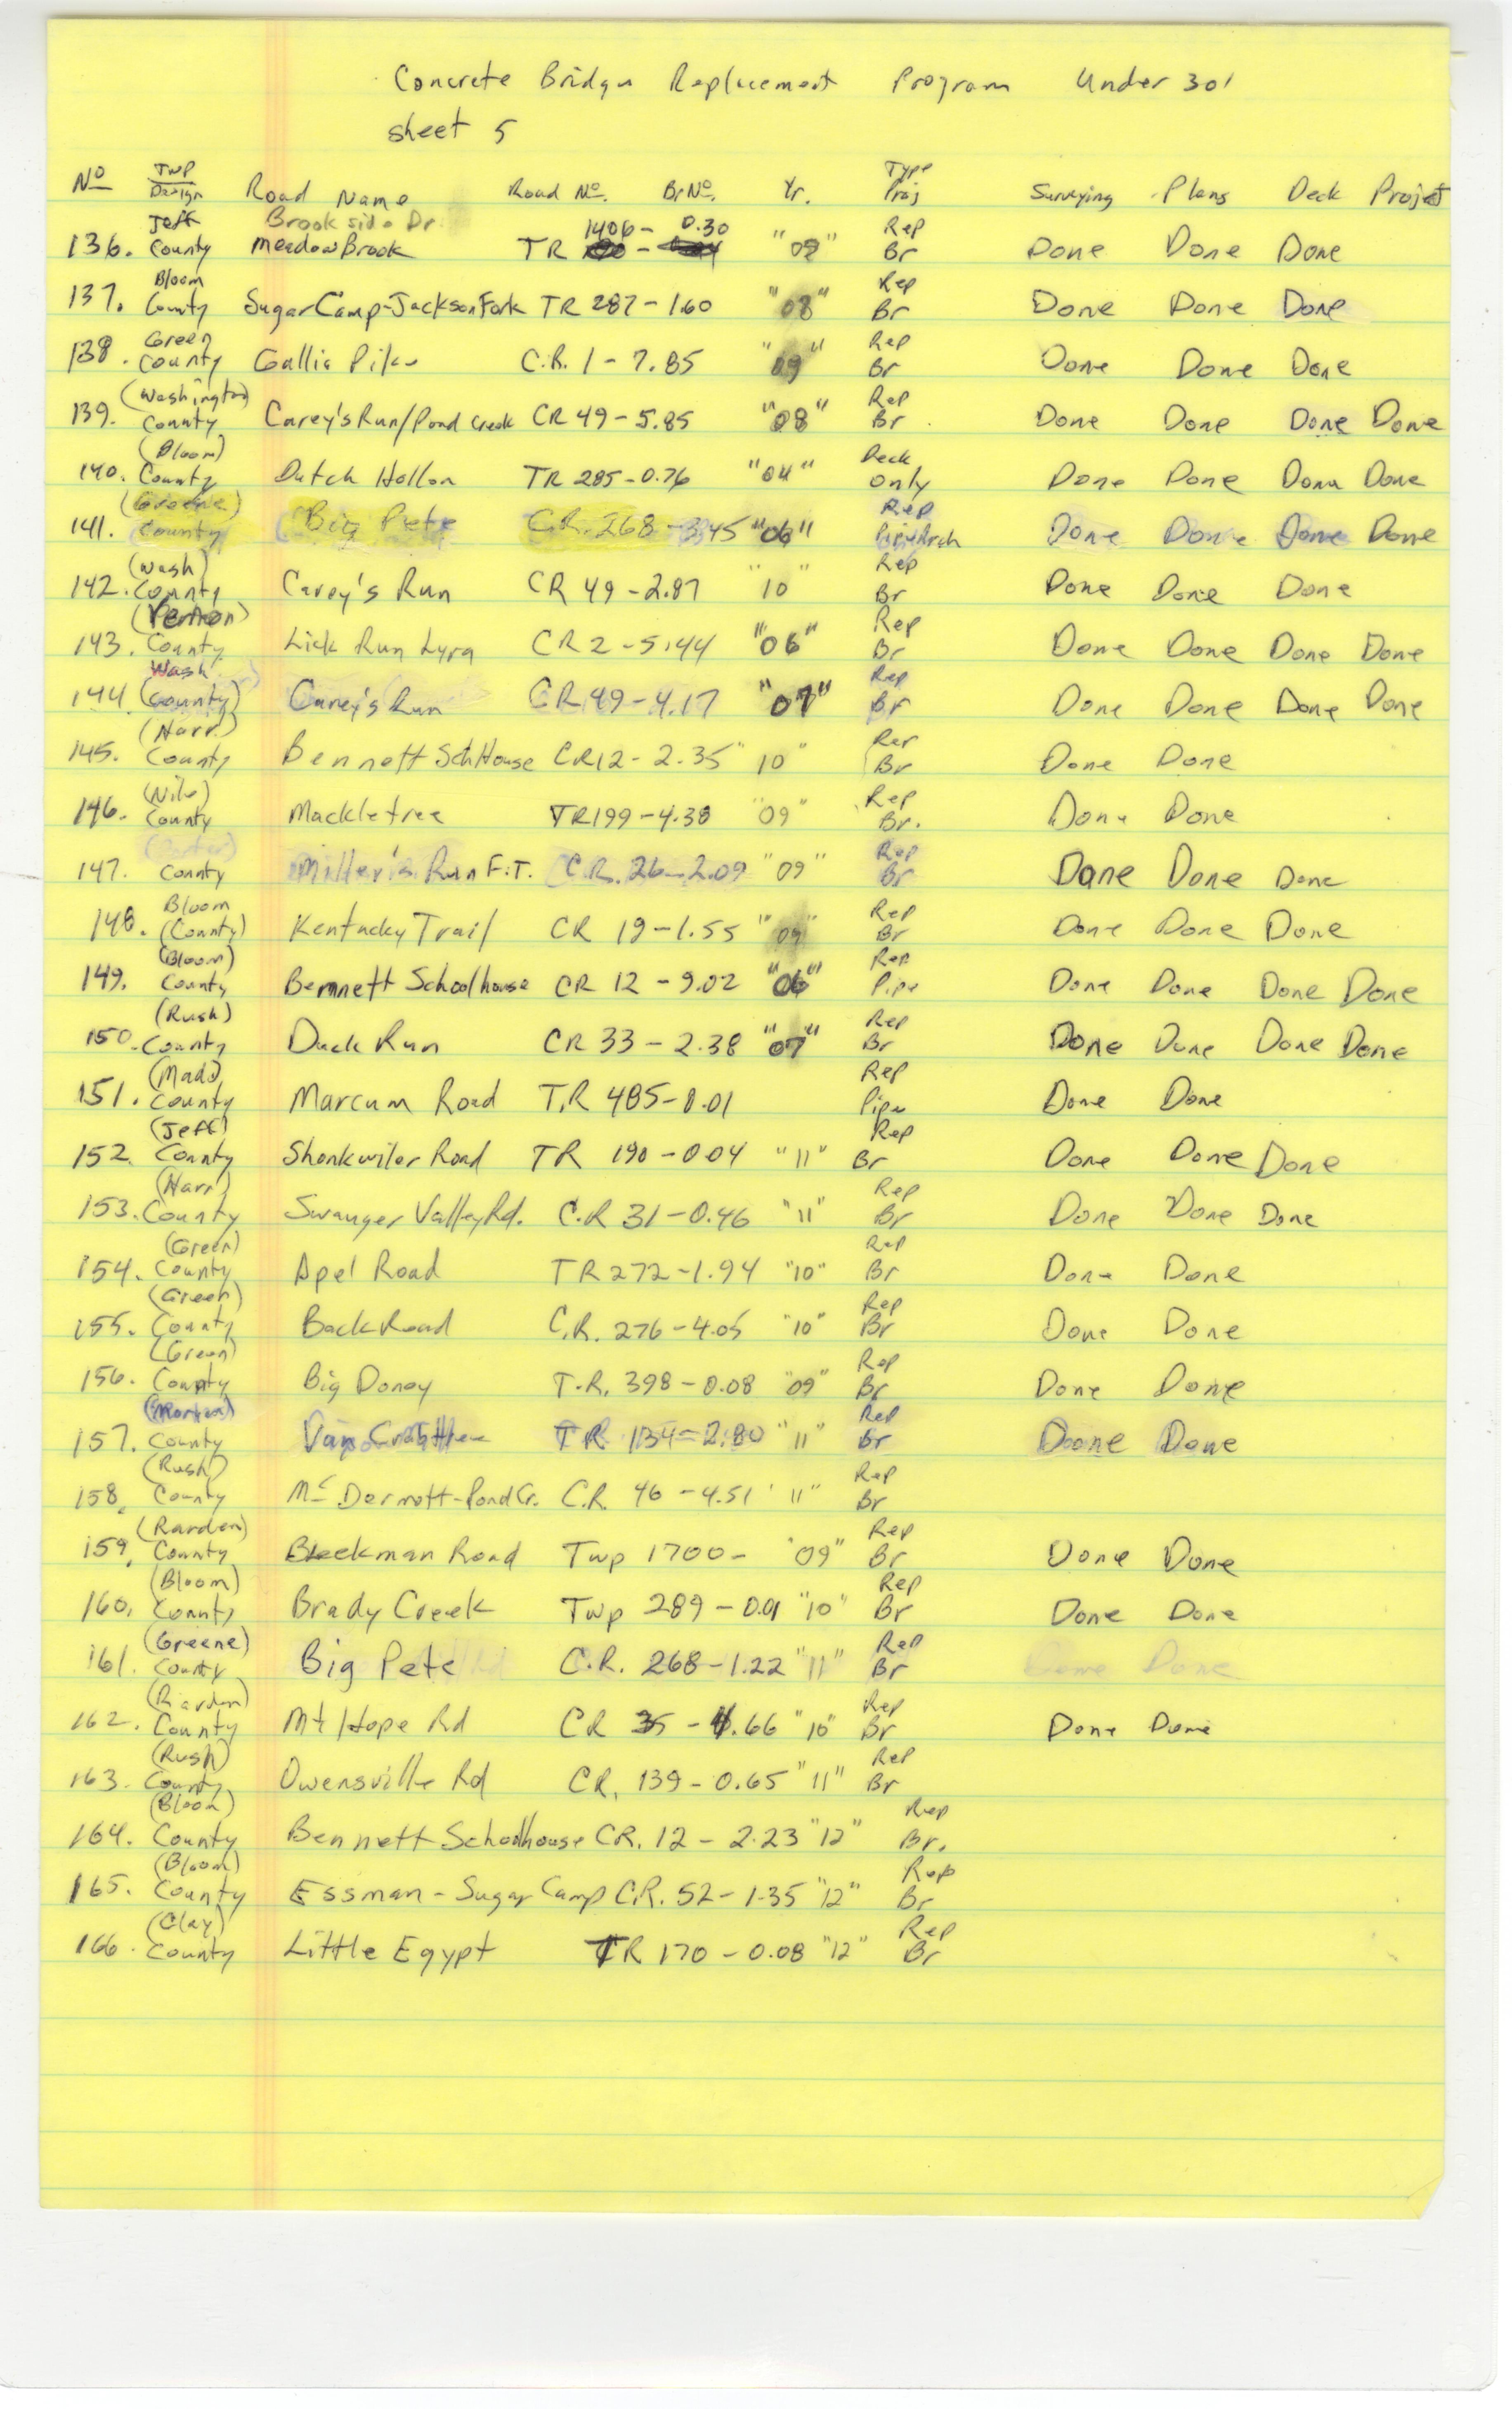 Concrete Bridge Replacement Program Under 30'
sheet 5
No Twp Design Road Name Road No. Br No. Yr. Type Proj Surveying Plans Deck Project
Jeff Brookside Dr. 1406 - 0.30 Rep
136. County MeadowBrook TR "09" Br Done Done Done
Bloom Rep
137. County SugarCamp-JacksonFork TR 287-1.60 "08" Br Done Done Done
Green Rep
138. County Gallia Pike C.R. 1 - 7.85 "09" Br Done Done Done
(Washington) Rep
139. County Carey's Run/Pond Creek CR 49-5.85 "08" Br. Done Done Done Done
(Bloom) Deck
140. County Dutch Hollow TR 285-0.76 "04" only Done Done Done Done
(Greene) Rep
141. County Big Pete C.R. 268 "06" Pipe Arch Done Done Done Done
(Wash) Rep
142. County Carey's Run CR 49-2.87 "10" Br Done Done Done
(Vernon) Rep
143. County Lick Run Lyra CR 2-5.44 "06" Br Done Done Done Done
Wash Rep
144. (County) Carey's Run CR 49-4.17 "07" Br Done Done Done Done
(Harr.) Rep
145. County Bennett SchHouse CR12-2.35 "10" Br Done Done
(Nile) Rep
146. County Mackletree TR199-4.38 "09" Br. Done Done
(Porter) Rep
147. County Miller's Run F.T. C.R. 26-2.09 "09" Br Done Done Done
Bloom Rep
148. (County) Kentucky Trail CR 19-1.55 "09" Br Done Done Done
(Bloom) Rep
149. County Bennett Schoolhouse CR 12-9.02 "06" Pipe Done Done Done Done
(Rush) Rep
150. County Duck Run CR 33-2.38 "07" Br Done Done Done Done
(Mad) Rep
151. County Marcum Road T.R 485-0.01 Pipe Done Done
(Jeff) Rep
152. County Shonkwiler Road TR 190-0.04 "11" Br Done Done Done
(Harr) Rep
153. County Swauger Valley Rd. C.R 31-0.46 "11" Br Done Done Done
(Green) Rep
154. County Apel Road TR 272-1.94 "10" Br Done Done
(Green) Rep
155. County Back Road C.R. 276-4.05 "10" Br Done Done
(Green) Rep
156. County Big Doney T.R. 398-0.08 "09" Br Done Done
(Morton) Rep
157. County T.R. 134-2.80 "11" Br Done Done
(Rush) Rep
158. County McDermott-Pond Cr. C.R. 46-4.51 "11" Br
(Rarden) Rep
159. County Bleekman Road Twp 1700- "09" Br Done Done
(Bloom) Rep
160. County Brady Creek Twp 289-0.01 "10" Br Done Done
(Greene) Rep
161. County Big Pete C.R. 268-1.22 "11" Br Done Done
(Rarden) Rep
162. County Mt Hope Rd CR 35 - .66 "10" Br Done Done
(Rush) Rep
163. County Owensville Rd CR. 139-0.65 "11" Br
(Bloom) Rep
164. County Bennett Schoolhouse CR. 12-2.23 "12" Br.
(Bloom) Rep
165. County Essman-Sugar Camp C.R. 52-1.35 "12" Br
(Clay) Rep
166. County Little Egypt TR 170-0.08 "12" Br